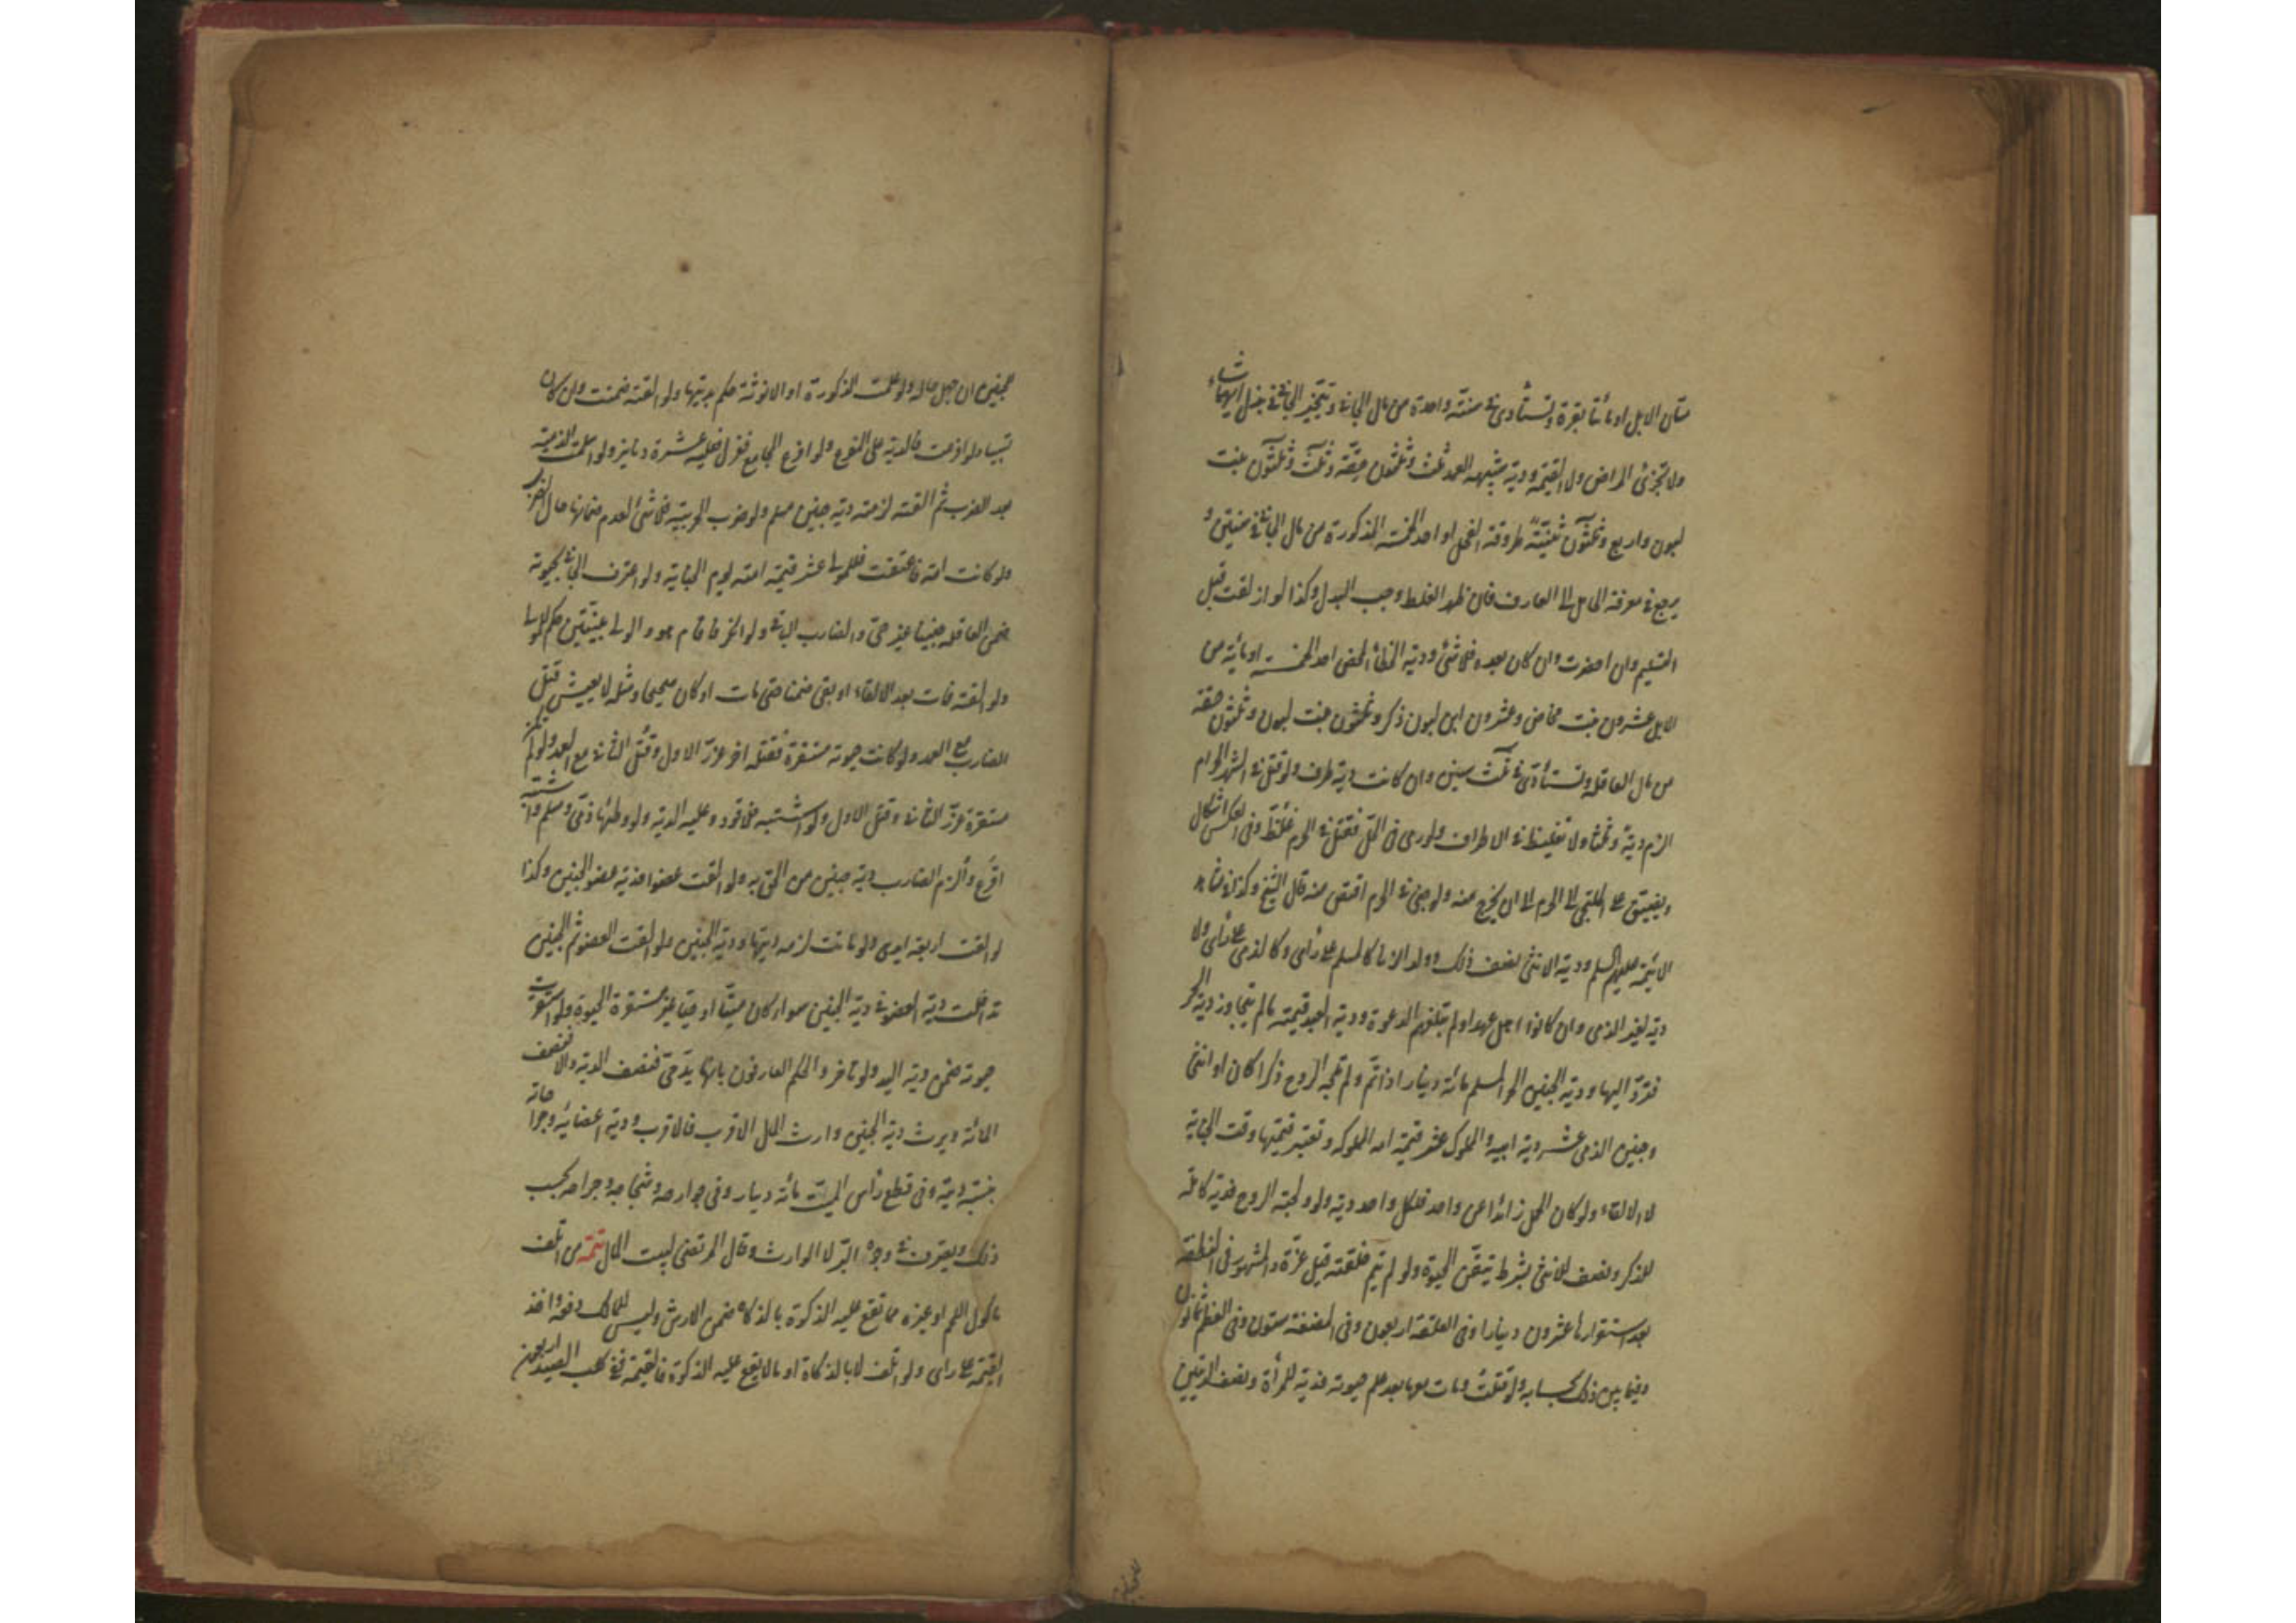 مسان الابل او مائتا بقرة وتستأدى فى سنة واحدة من مال الجانى ويتخير الجانى فى بذل ايها شاء
ولا تجزئ المراض ولا القيمة ودية شبيه العمد ثلث وثلثون حقة وثلث وثلثون بنت
لبون واربع وثلثون ثنية طروقة الفحل او احد الخمسة المذكورة من مال الجانى فى سنتين و
يرجع فى معرفة الحامل الى العارف فان ظهر الغلط وجب البدل وكذا لو ازلقت قبل
التسليم وان احضرت وان كان بعده فلا شئ ودية الخطأ المحض احد الخمسة او مائة من
الابل عشرون بنت مخاض وعشرون ابن لبون ذكر وثلثون بنت لبون وثلثون حقة
من مال العاقلة وتستأدى فى ثلث سنين وان كانت دية طرف ولو قتل فى الشهر الحرام
الزم دية وثلثا ولا تغليظ فى الاطراف ولو رمى فى الحل فقتل فى الحرم غلظ وفى العكس اشكال
ويضيق على الملتجى الى الحرم الى ان يخرج منه ولو جنى فى الحرم اقتص منه قال الشيخ وكذا فى مشاهد
الائمة عليهم السلم ودية الانثى نصف ذلك وولد الزنا كالمسلم على رأى وكالذمى على رأى ولا
دية لغير الذمى وان كانوا اهل عهد او لم تبلغهم الدعوة ودية العبد قيمته ما لم يتجاوز دية الحر
فترد اليها ودية الجنين الحر المسلم مائة دينار اذا تم ولم تلجه الروح ذكرا كان او انثى
وجنين الذمى عشر دية ابيه والمملوك عشر قيمة امه المملوكة وتعتبر قيمتها وقت الجناية
لا الالقاء ولو كان الحمل زائدا عن واحد فلكل واحد دية ولو ولجته الروح فدية كاملة
للذكر ونصف للانثى بشرط تيقن الحيوة ولو لم يتم خلقته قيل غرة والمشهور فى النطفة
بعد استقرارها عشرون دينارا وفى العلقة اربعون وفى المضغة ستون وفى العظم ثمانون
وفيما بين ذلك بحسابه ولو قتلت ومات معها بعد علم حيوته فدية للمرأة ونصف الديتين
للجنين ان جهل حاله ولو علمت الذكورة او الانوثة حكم بديتها ولو القته ضمنت وان كان
تسبيبا ولو افزعت فالدية على المفزع ولو افزع المجامع فعزل فعليه عشرة دنانير ولو اسلمت الذمية
بعد الضرب ثم القته لزمته دية جنين مسلم ولو ضرب الحربية فلا شئ لعدم ضمانها حال الضرب
ولو كانت امة فاعتقت فللمولى عشر قيمة امته يوم الجناية ولو اعترف الجانى بحيوته
ضمن العاقلة جنينا غير حى والضارب الباقى ولو انكر فاقام هو والولى بينتين حكم للولى
ولو القته فمات بعد الالقاء او بقى ضمنا حتى مات او كان صحيحا ومثله لا يعيش قتل
الضارب مع العمد ولو كانت حيوته مستقرة فقتله اخر عزر الاول وقتل الثانى مع العمد ولو لم تكن
مستقرة عزر الثانى وقتل الاول ولو اشتبه فلا قود وعليه الدية ولو وطئها ذمى ومسلم واشتبه
اقرع والزم الضارب دية جنين من الحق به ولو القت عضوا فدية عضو الجنين وكذا
لو القت اربعة ايدى ولو ماتت لزمه ديتها ودية الجنين ولو القت العضو ثم الجنين
تداخلت دية العضو فى دية الجنين سواء كان ميتا او حيا غير مستقرة الحيوة ولو استقرت
حيوته ضمن دية اليد ولو تاخر والحكم العارفون بانها يد حى فنصف الدية والا فنصف
المائة ويرث دية الجنين وارث المال الاقرب فالاقرب ودية اعضائه وجراحاته
بنسبة ديته وفى قطع رأس الميت مائة دينار وفى جوارحه وشجاجه وجراحه بحسب
ذلك ويصرف فى وجوه البر لا الوارث وقال المرتضى لبيت المال تتمة من اتلف
ماكول اللحم او غيره مما تقع عليه الذكوة بالذكاة ضمن الارش وليس للمالك دفعه واخذ
القيمة على راى ولو اتلف لا بالذكاة او ما لا يقع عليه الذكوة فالقيمة ففى كلب الصيد اربعون